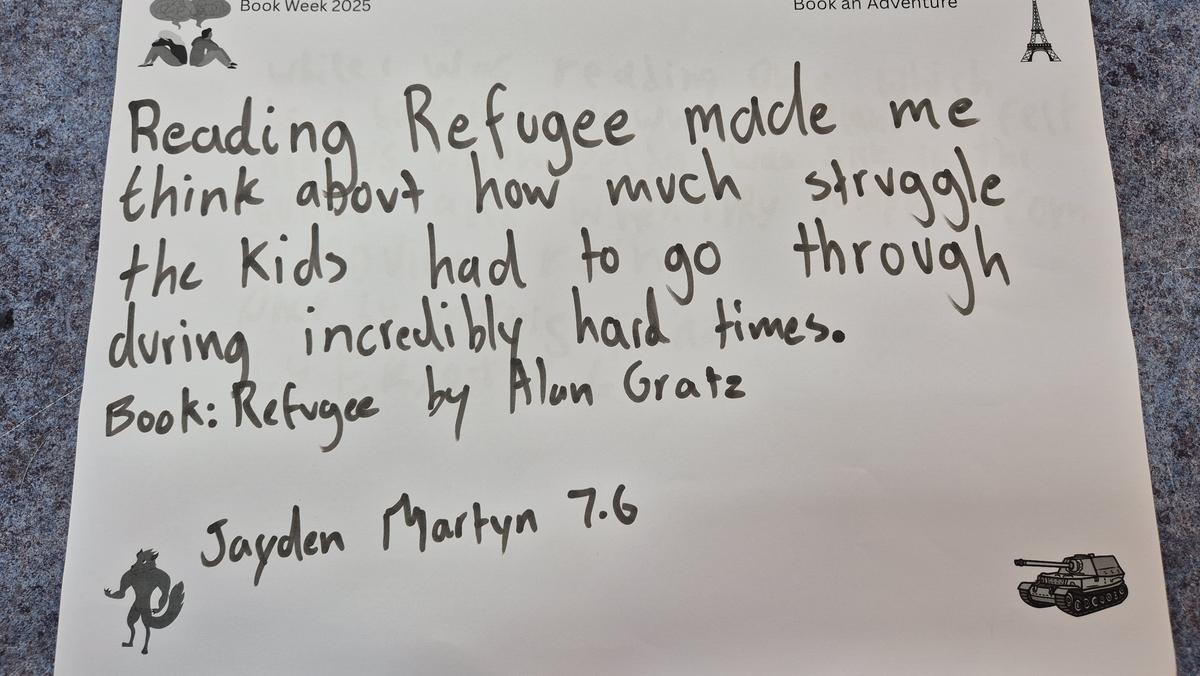 Book Week 2025
Book an Adventure
Reading Refugee made me
think about how much struggle
the kids had to go through
during incredibly hard times.
Book: Refugee by Alan Gratz
Jayden Martyn 7.6